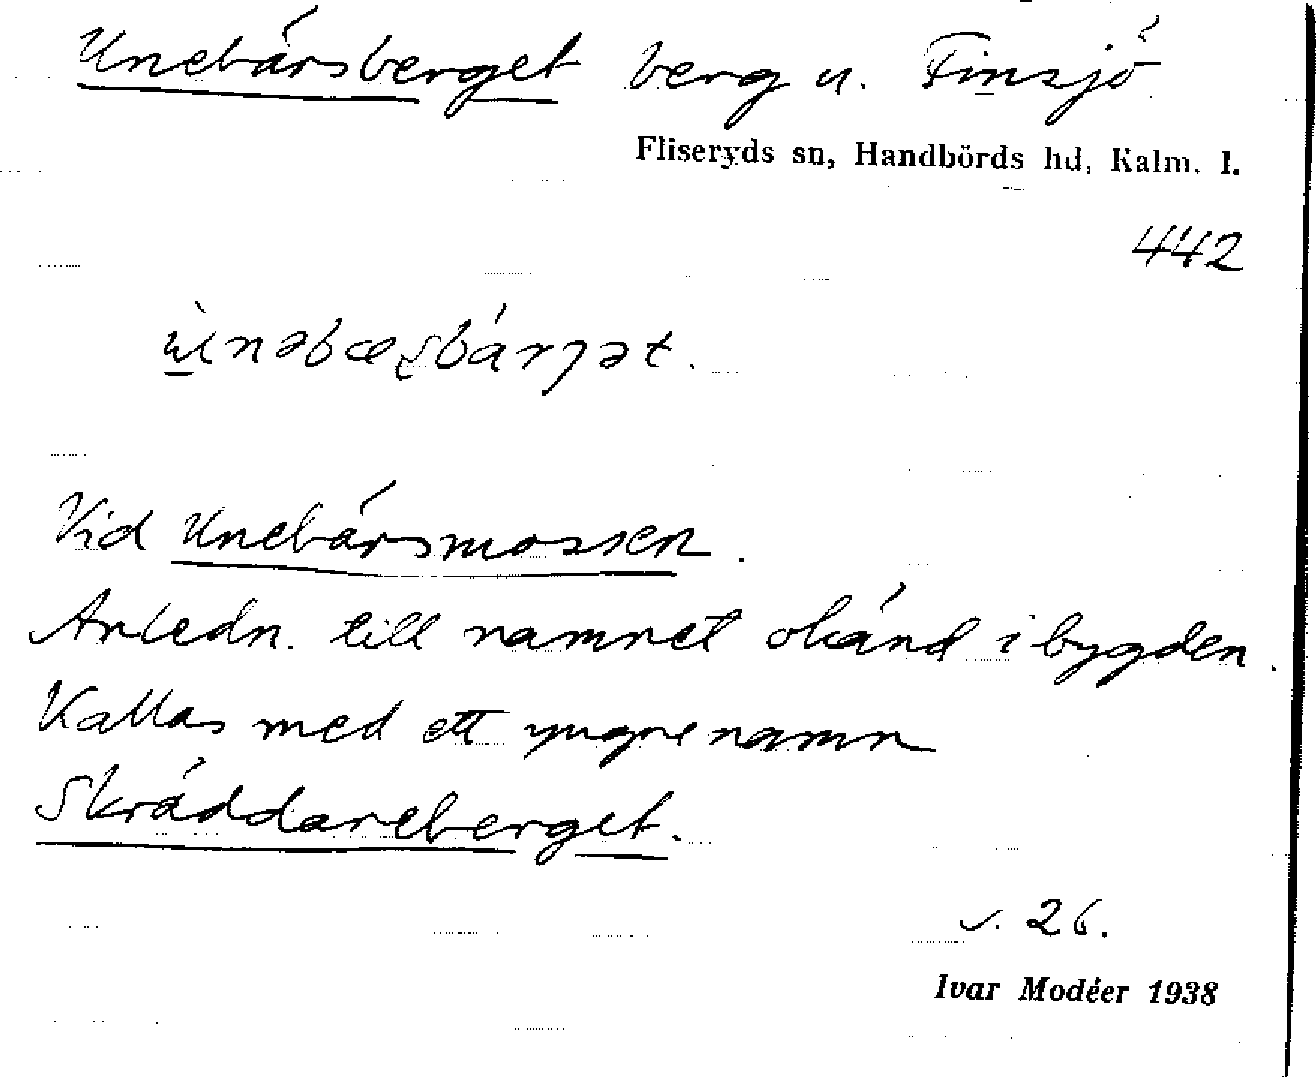 Unebärsberget berg u. Finsjö
Fliseryds sn, Handbörds hd, Kalm. l.
442
Vid Unebärsmossen.
Anledn. till namnet okänd i bygden.
Kallas med ett yngre namn
Skräddareberget.
s. 26.
Ivar Modéer 1938